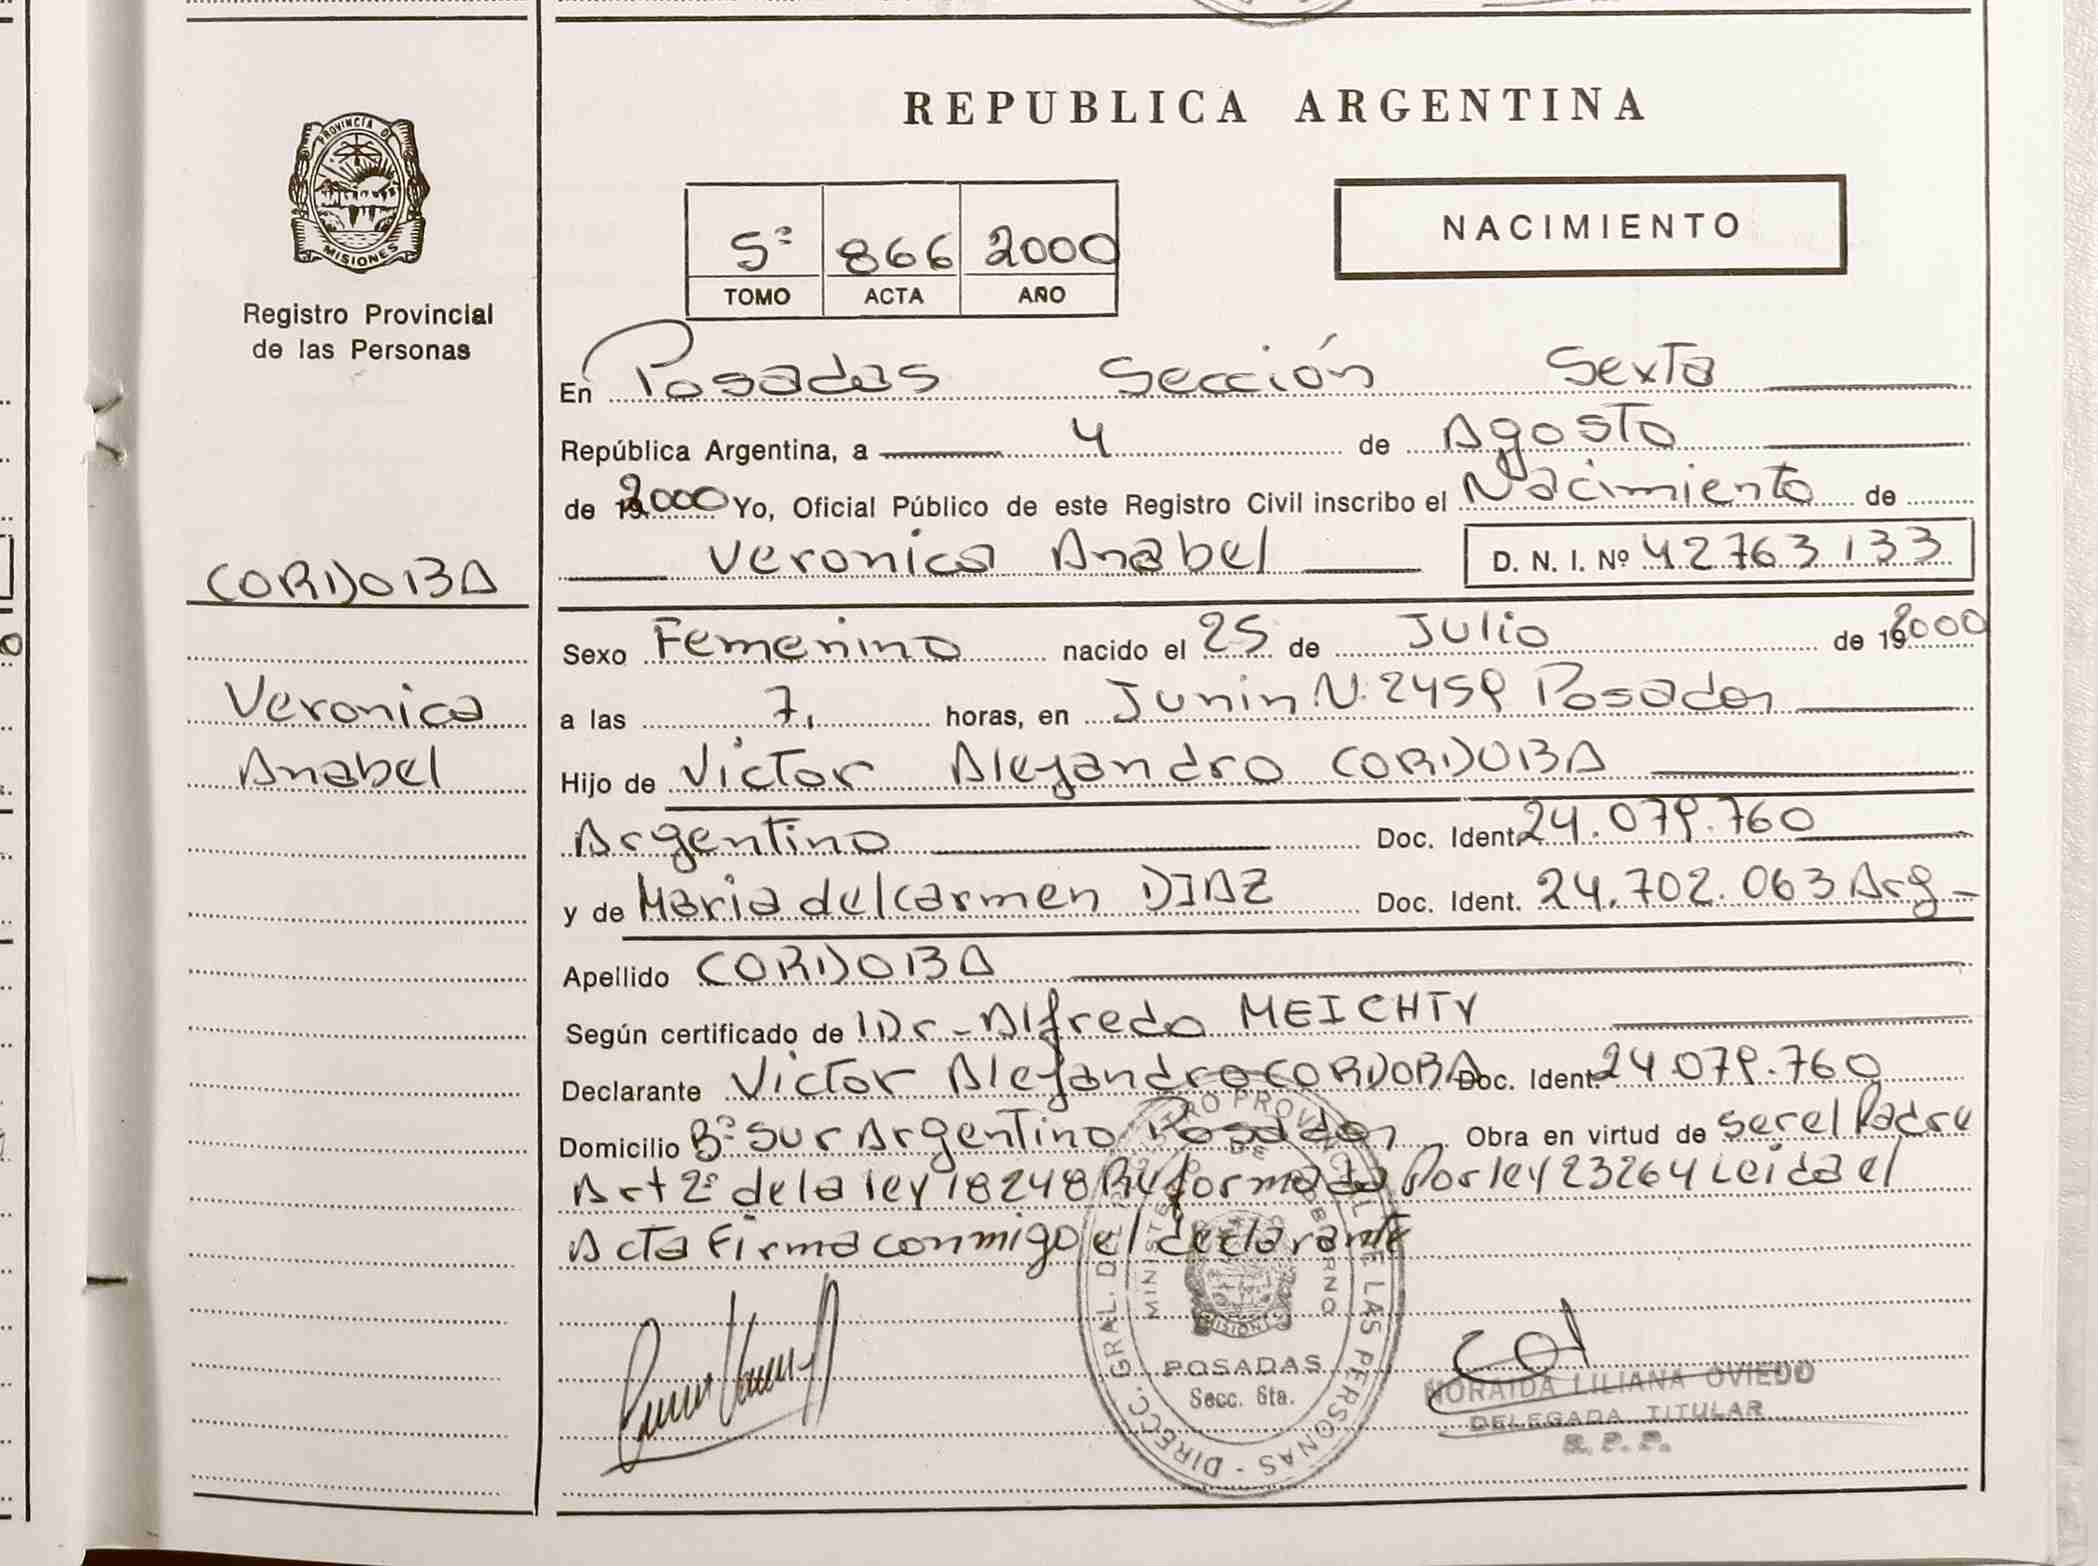 REPUBLICA ARGENTINA
PROVINCIA DE
MISIONES
Registro Provincial
de las Personas
NACIMIENTO
5º 866 2000
TOMO ACTA AÑO
En Posadas Sección Sexta
República Argentina, a 4 de Agosto
de 2000 Yo, Oficial Público de este Registro Civil inscribo el Nacimiento de
Veronica Anabel D. N. I. Nº 42763.133
CORDOBA
Veronica
Anabel
Sexo Femenino nacido el 25 de Julio de 192000
a las 7, horas, en Junin N. 2459 Posadas
Hijo de Victor Alejandro CORDOBA
Argentino Doc. Ident. 24.079.760
y de Maria del carmen DIAZ Doc. Ident. 24.702.063 Arg
Apellido CORDOBA
Según certificado de Dr. Alfredo MEICHTY
Declarante Victor Alejandro CORDOBA Doc. Ident 24.079.760
Domicilio Bº Sur Argentino Posadas Obra en virtud de ser el Padre
Art 2º de la ley 18248 Reformada Por ley 23264 Leida el
Acta Firma conmigo el declarante
DIRECC. GRAL. DEL REGISTRO PROVINCIAL DE LAS PERSONAS
MINISTERIO DE GOBIERNO
MISIONES
POSADAS
Secc. 6ta.
NORAIDA LILIANA OVIEDO
DELEGADA TITULAR
R. P. P.